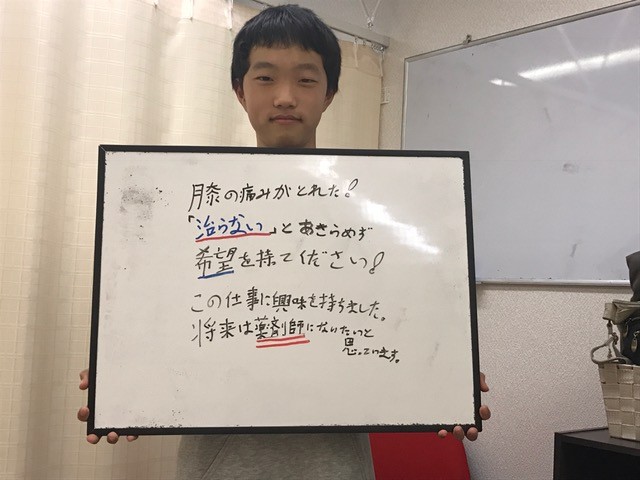 膝の痛みがとれた！
「治らない」とあきらめず
希望を持てください！
この仕事に興味を持ちました。
将来は薬剤師になりたいっと
思っています。